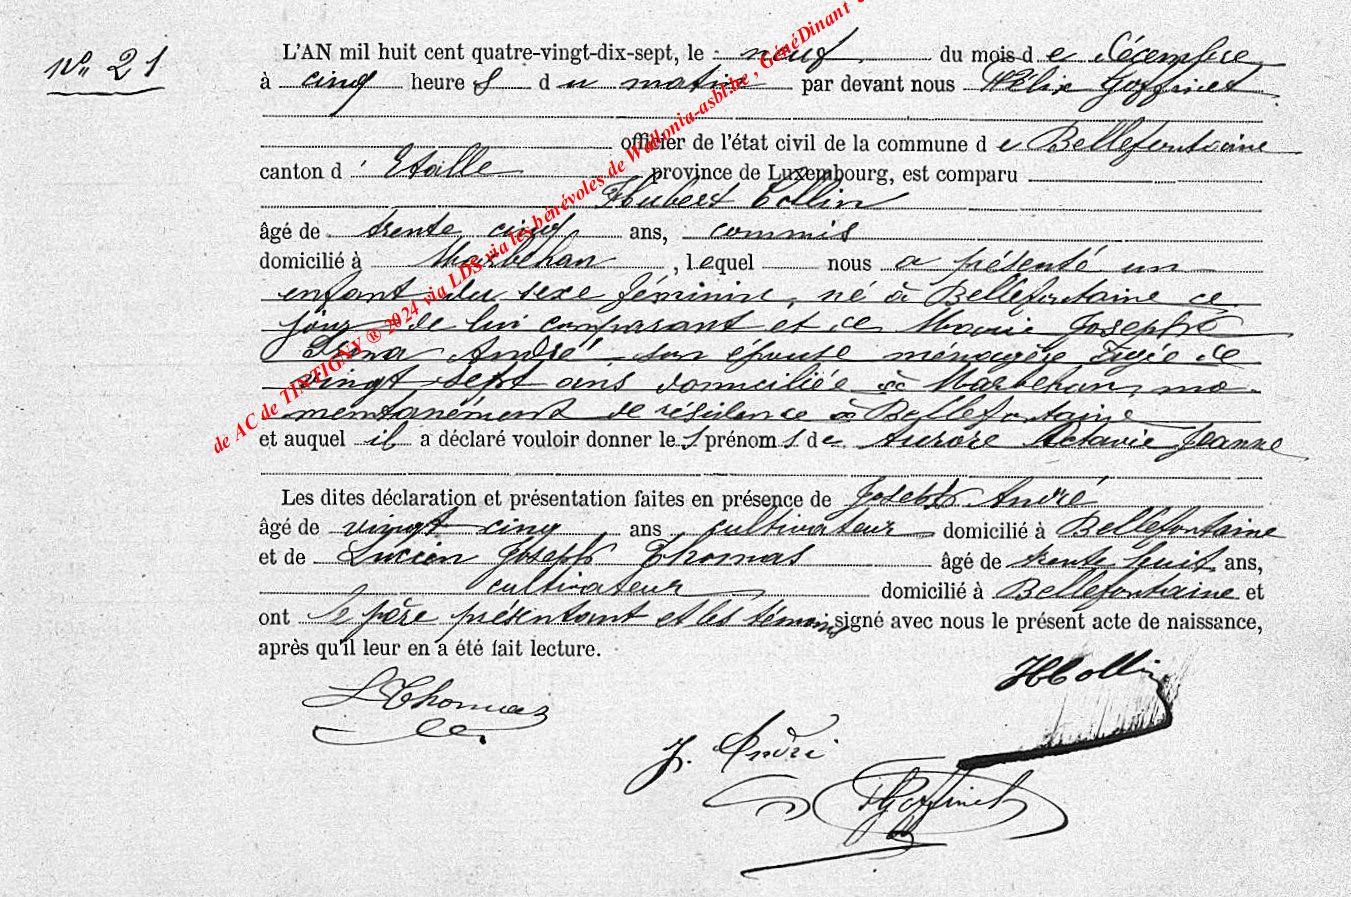 N° 21
L'AN mil huit cent quatre-vingt-dix-sept, le neuf du mois d e décembre
à cinq heure s d u matin par devant nous Félix Goffinet
officier de l'état civil de la commune d e Bellefontaine
canton d' Etalle province de Luxembourg, est comparu
Hubert Collin
âgé de trente cinq ans, commis
domicilié à Marbehan, lequel nous a présenté un
enfant du sexe féminin, né à Bellefontaine ce
jour de lui comparant et de Marie Josephe
André son épouse ménagère âgée de
vingt sept ans domiciliée à Marbehan, mo-
mentanément de résidence à Bellefontaine
et auquel il a déclaré vouloir donner le s prénom s de Aurore Octavie Jeanne
Les dites déclaration et présentation faites en présence de Joseph André
âgé de vingt cinq ans cultivateur domicilié à Bellefontaine
et de Lucien Joseph Thomas âgé de trente huit ans,
cultivateur domicilié à Bellefontaine et
ont le père présentant et les témoins signé avec nous le présent acte de naissance,
après qu'il leur en a été fait lecture.
HCollin
LThomas
J. André
FGoffinet
de AC de TINTIGNY ® 2024 via LDS via les bénévoles de Wallonia-asbl.be, GénéDinant